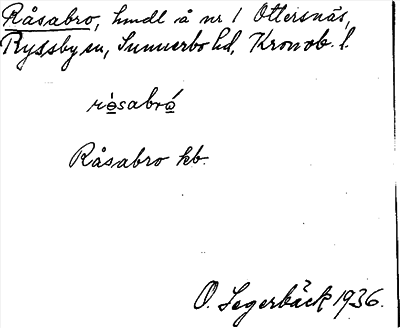 Råsabro, hmdl å nr 1 Ottersnäs,
Ryssby sn, Sunnerbo hd, Kronob. l.
rò̲sabró̲
Råsabro kb.
O. Segerbäck 1936.